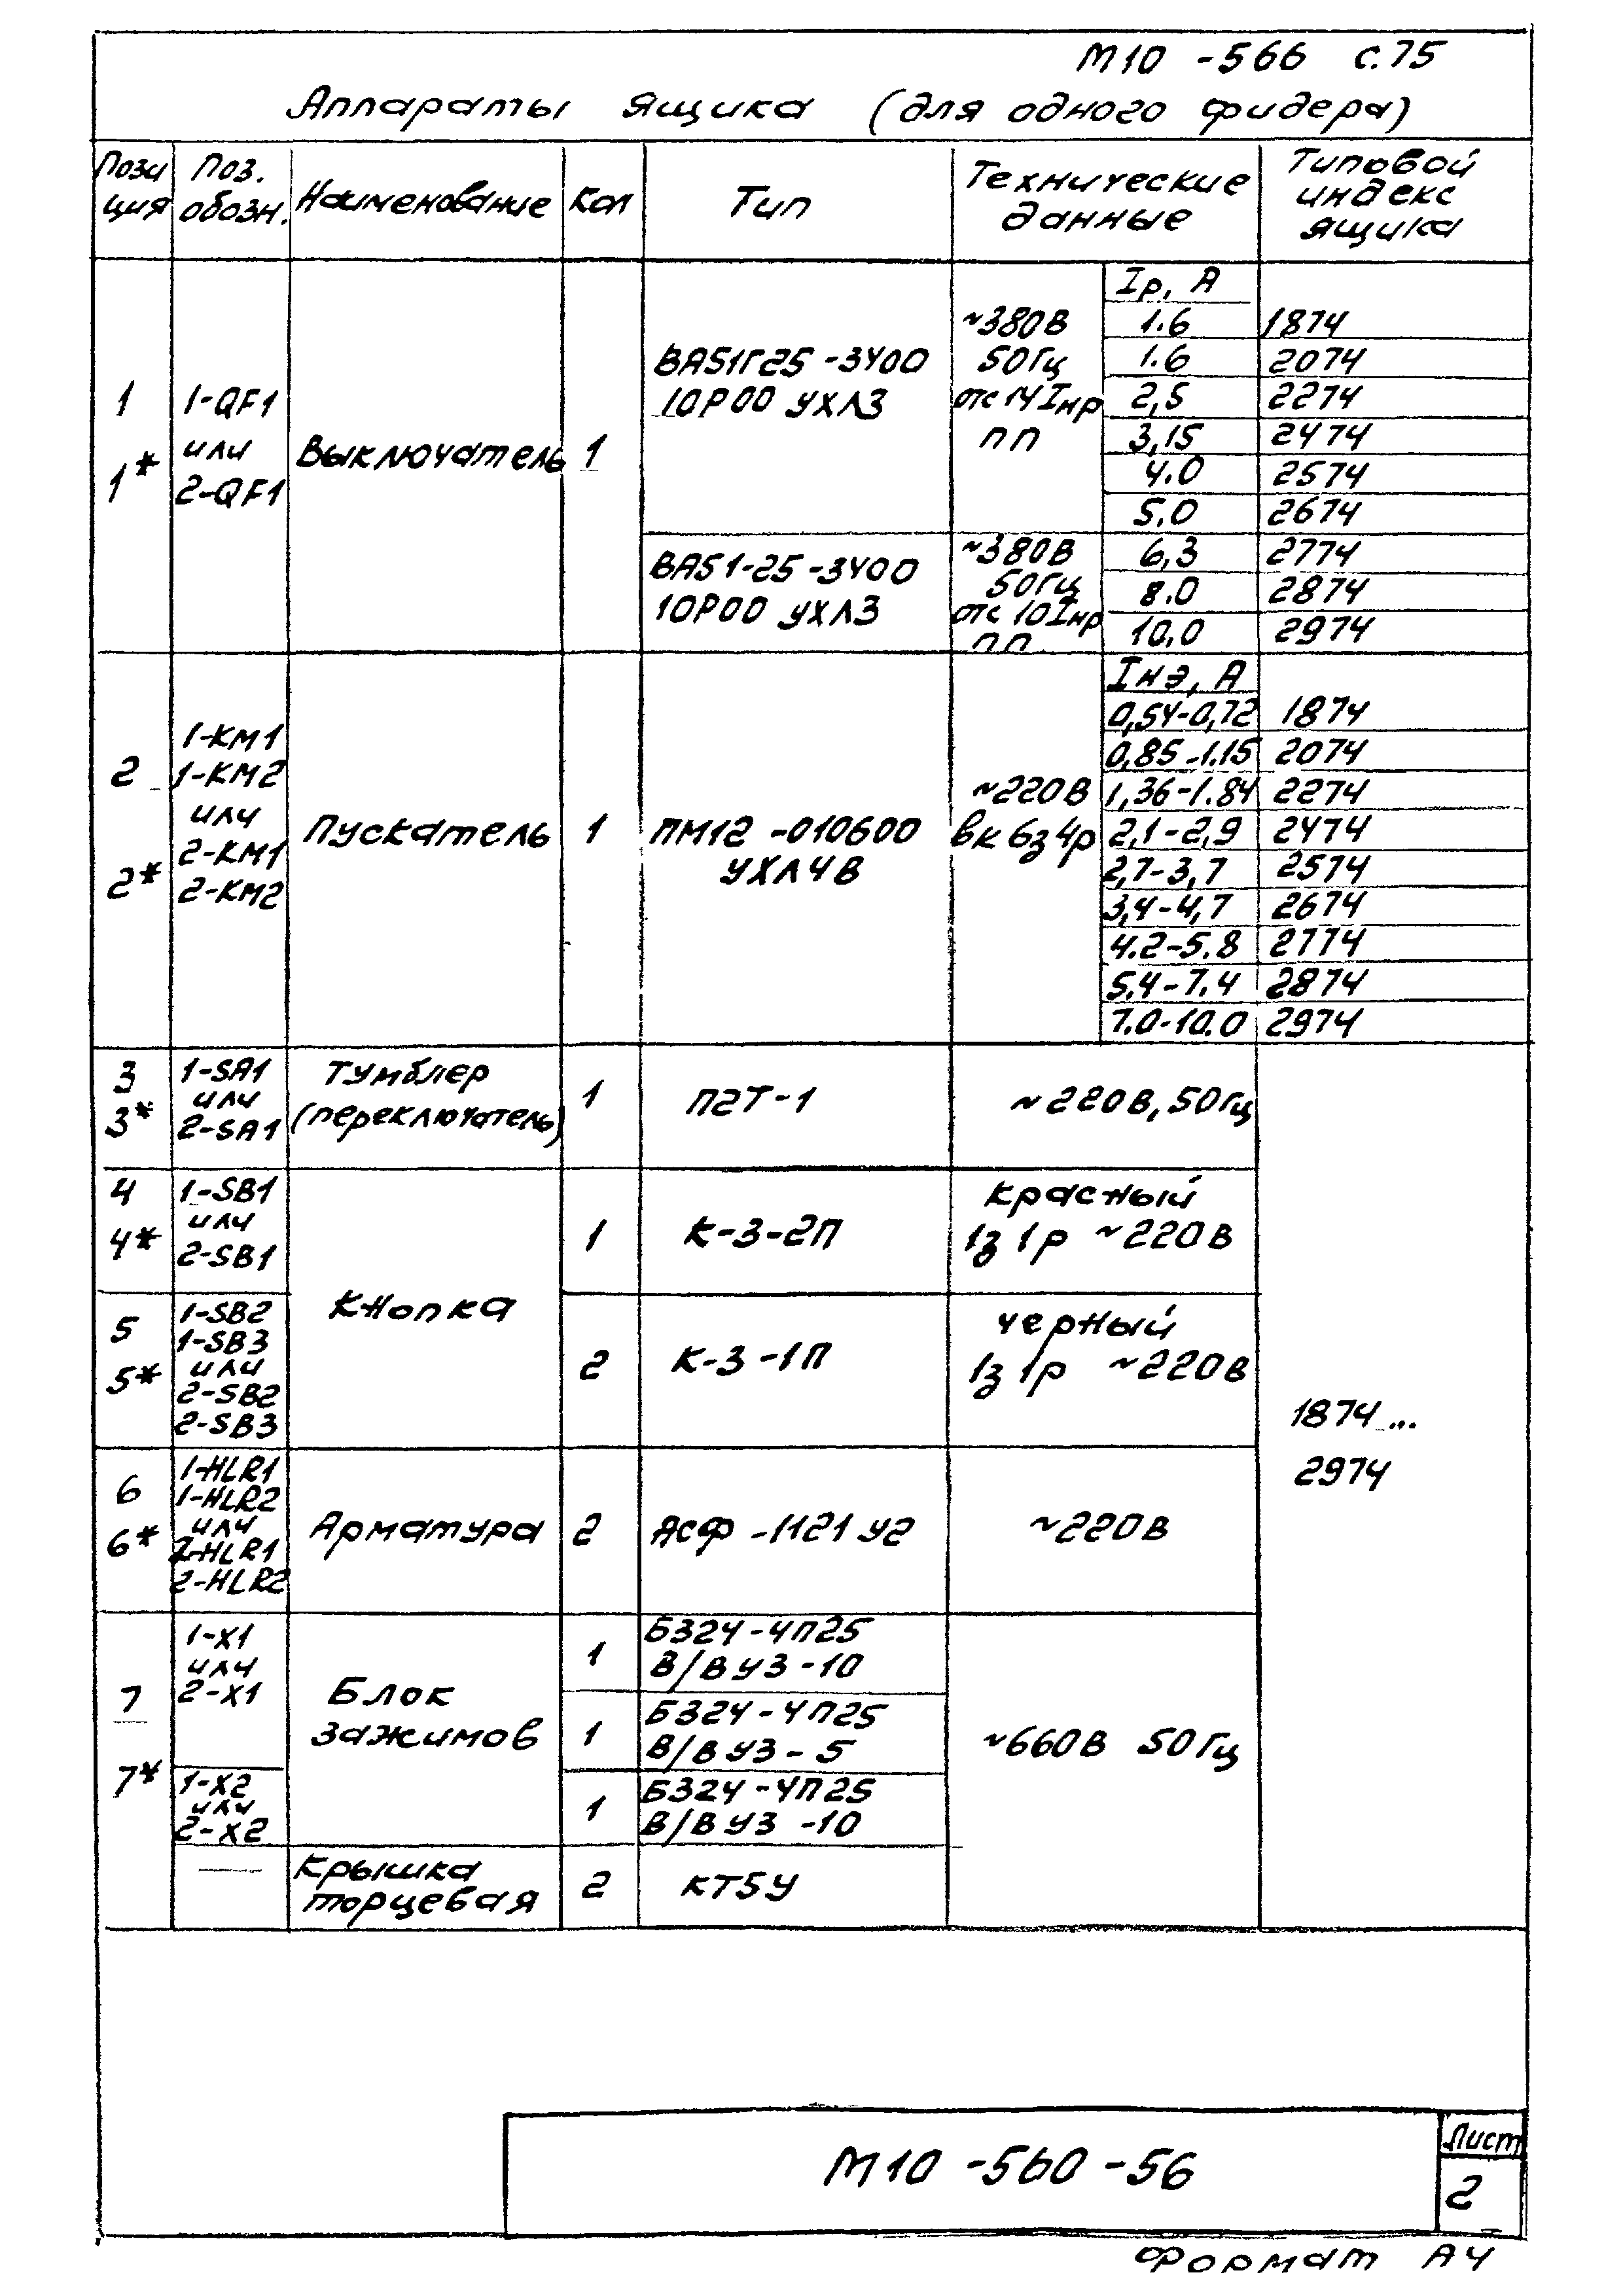 М10 -566 с.75
Аппараты ящика (для одного фидера)
Пози
ция
Поз.
обозн.
Наименование
Кол
Тип
Технические
данные
Типовой
индекс
ящика
1
1*
1-QF1
или
2-QF1
Выключатель
1
ВА51Г25 -3400
10Р00 УХЛ3
~380В
50Гц
отс 14 Iнр
пп
Iр, А
1.6 1874
1.6 2074
2,5 2274
3,15 2474
4.0 2574
5.0 2674
ВА51-25 -3400
10Р00 УХЛ3
~380В
50Гц
отс 10Iнр
пп
6,3 2774
8.0 2874
10,0 2974
2
2*
1-КМ1
1-КМ2
или
2-КМ1
2-КМ2
Пускатель
1
ПМ12 -010600
УХЛ4 В
~220В
вк 6з 4р
Iнэ, А
0,54-0,72 1874
0,85-1.15 2074
1,36-1.84 2274
2,1-2,9 2474
2,7-3,7 2574
3,4-4,7 2674
4.2-5.8 2774
5.4-7.4 2874
7.0-10.0 2974
3
3*
1-SA1
или
2-SA1
Тумблер
(переключатель)
1
П2Т-1
~220В, 50Гц
4
4*
1-SB1
или
2-SB1
Кнопка
1
К-3-2П
красный
1з 1р ~220В
5
5*
1-SB2
1-SB3
или
2-SB2
2-SB3
2
К-3-1П
черный
1з 1р ~220В
1874...
2974
6
6*
1-HLR1
1-HLR2
или
2-HLR1
2-HLR2
Арматура
2
АСФ -1121 У2
~220В
7
7*
1-Х1
или
2-Х1
1-Х2
или
2-Х2
Блок
зажимов
1
БЗ24-4П25
В/ВУ3-10
1
БЗ24-4П25
В/ВУ3-5
1
БЗ24-4П25
В/ВУ3 -10
~660В 50Гц
—
Крышка
торцевая
2
КТ5У
М10 -560 -56
Лист
2
Формат А4